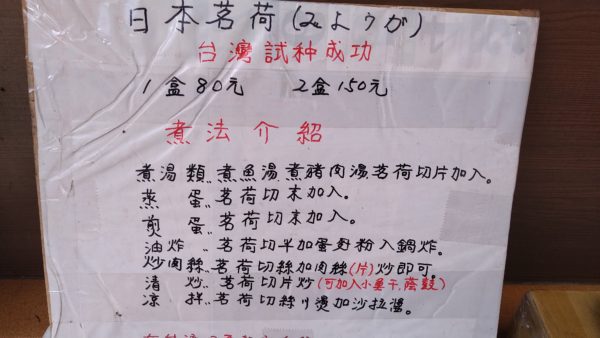 日本茗荷(みようが)
台灣試种成功
1盒80元 2盒150元
煮法介紹
煮湯類〃煮魚湯煮豬肉湯茗荷切片加入。
蒸 蛋〃茗荷切末加入。
煎 蛋〃茗荷切末加入。
油炸〃茗荷切半加蛋麵粉入鍋炸。
炒肉絲〃茗荷切絲加肉絲(片)炒即可。
清 炒〃茗荷切片炒(可加入小魚干,蔭鼓)
凉 拌〃茗荷切絲川燙加沙拉醬。